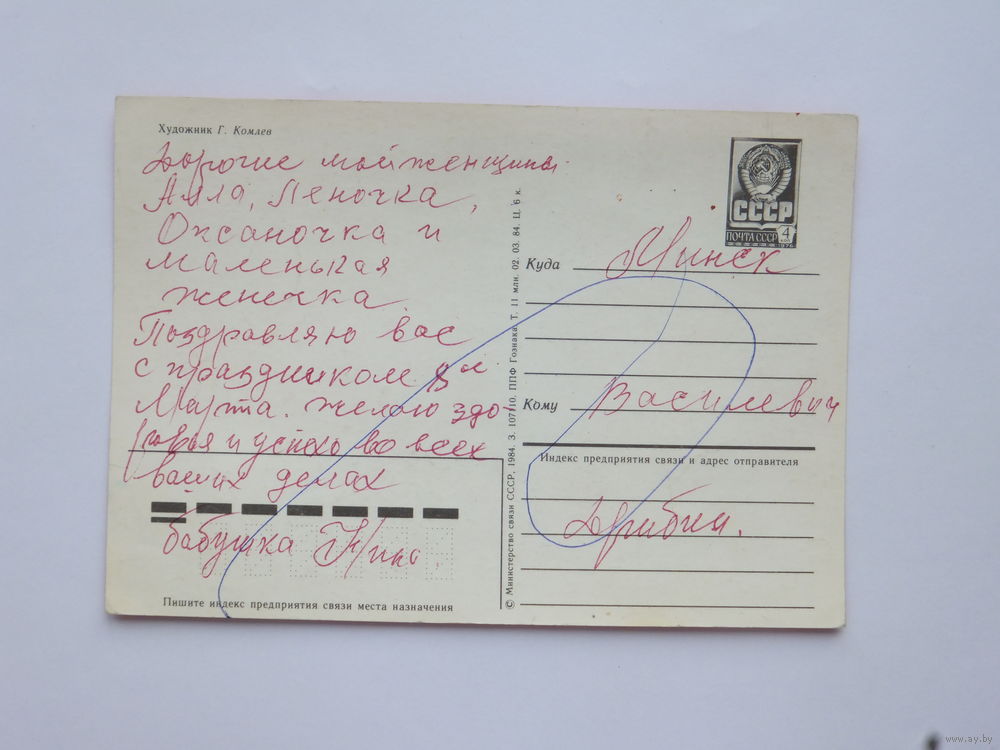 Художник Г. Комлев
Дорогие мои женщины
Алла, Леночка,
Оксаночка и
маленькая
женечка
Поздравляю вас
с праздником 8ое
Марта. желаю здо-
ровья и успехо во всех
ваших делах
бабушка Нина
Пишите индекс предприятия связи места назначения
© Министерство связи СССР, 1984. З. 107110. ППФ Гознака. Т. 11 млн. 02. 03. 84. Ц. 6 к.
СССР
ПОЧТА СССР 4
1976
Куда Минск
Кому Василевич
Индекс предприятия связи и адрес отправителя
Дрибин.
www.ay.by